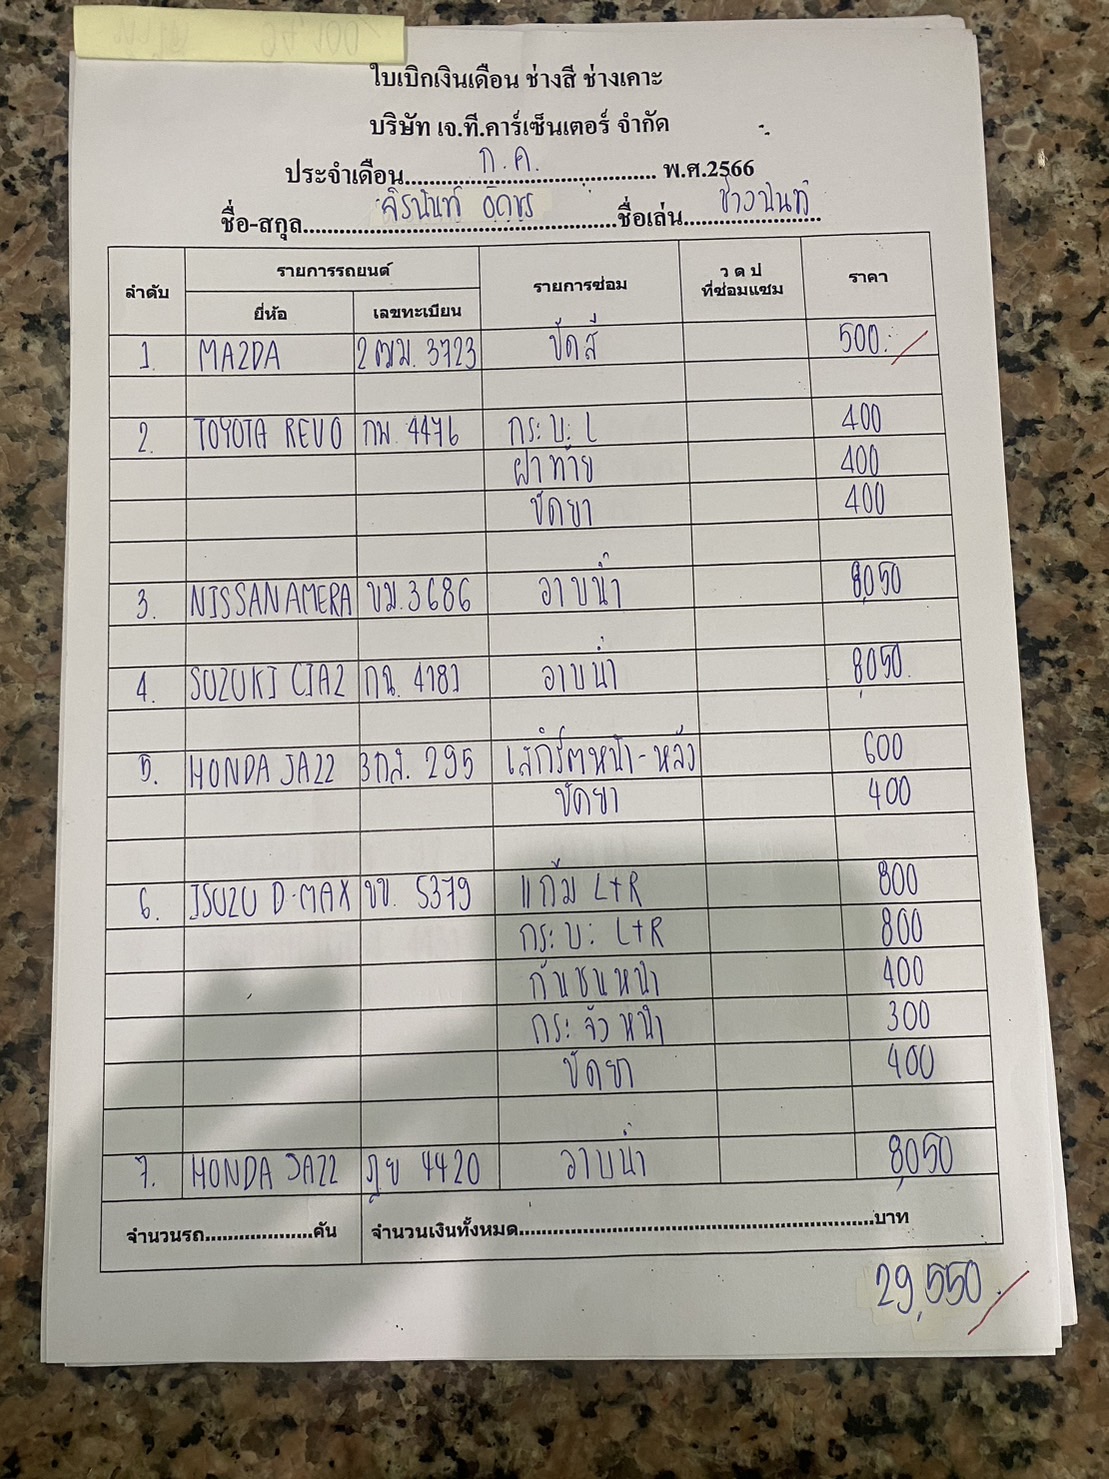 ใบเบิกเงินเดือน ช่างสี ช่างเคาะ
บริษัท เจ.ที.คาร์เซ็นเตอร์ จำกัด
ประจำเดือน ก.ค. พ.ศ.2566
ชื่อ-สกุล จิรนันท์ ชื่อเล่น ช่างนันท์
ลำดับ รายการรถยนต์ รายการซ่อม ว ด ป ที่ซ่อมแซม ราคา
ยี่ห้อ เลขทะเบียน
1. MAZDA 2ฒม. 3723 ขัดสี 500.-
2. TOYOTA REVO กพ. 4476 กระบะ L 400
ฝาท้าย 400
ขัดยา 400
3. NISSAN AMERA ขม. 3686 อาบน้ำ 8,050
4. SUZUKI CIAZ กฉ. 4181 อาบน้ำ 8,050.
5. HONDA JAZZ 3กส. 295 เสกิร์ตหน้า-หลัง 600
ขัดยา 400
6. ISUZU D-MAX ขข. 5379 แก้ม L+R 800
กระบะ L+R 800
กันชนหน้า 400
กระจังหน้า 300
ขัดยา 400
7. HONDA JAZZ ภูย 4420 อาบน้ำ 8,050
จำนวนรถ....................คัน จำนวนเงินทั้งหมด....................บาท
29,550.